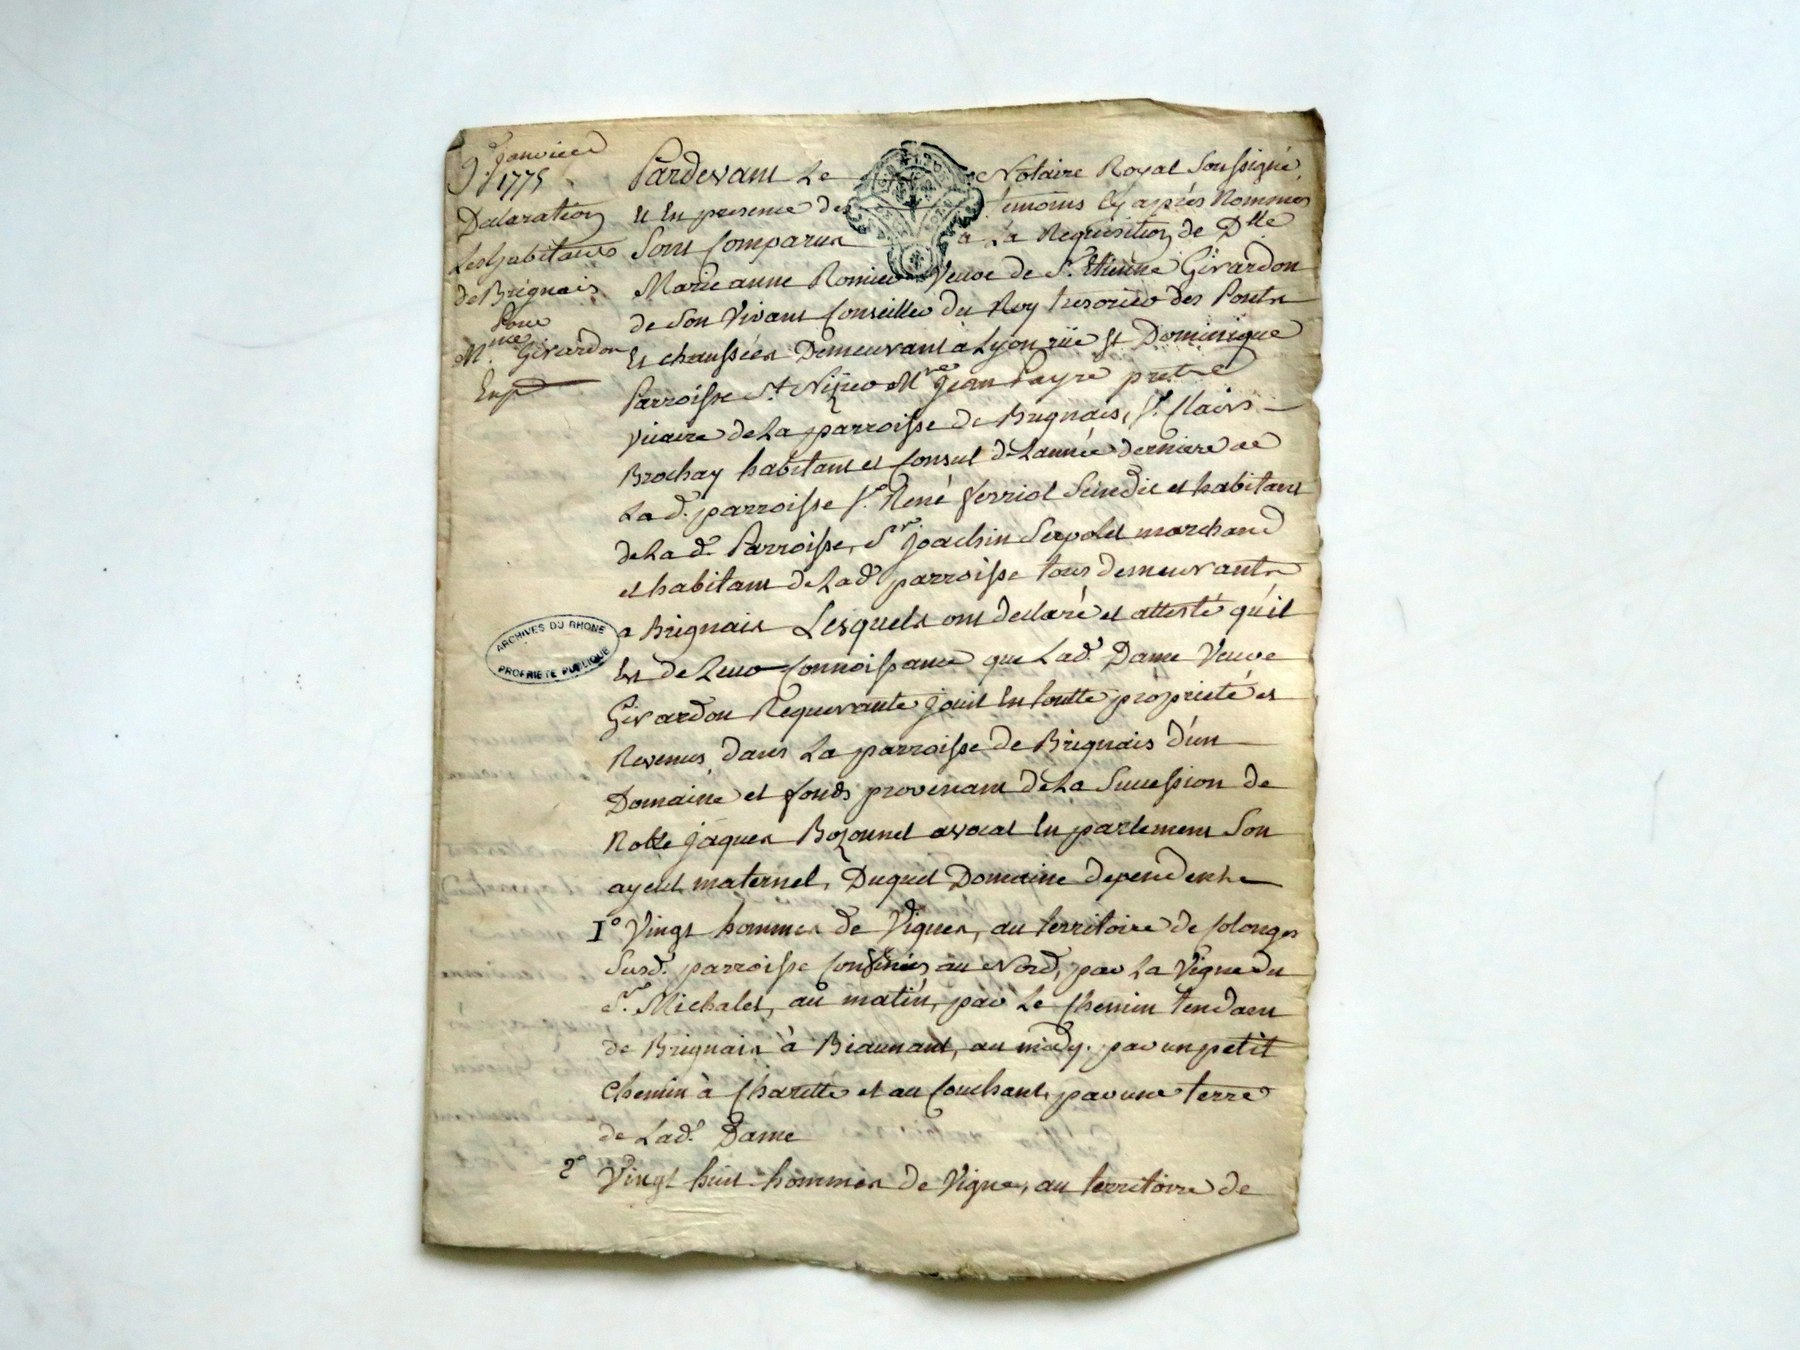 9.e janvier
1775
Declaration
des habitants
de Brignais
Pour
M.me Girardon
Exp.
Pardevant Le Notaire Royal Soussigné,
Et En presence des temoins Cy aprés Nommes
Sont Comparus a La Requisition de Dlle
Marie anne Romieu Veuve de Sr. Etienne Girardon
de Son Vivant Conseiller du Roy tresorier des Ponts
Et chaussées Demeurant à Lyon rüe St Dominique
Parroisse St. Nizier Mre Jean Payre pretre
vicaire de La parroisse de Brignais, Sr. Clair
Brochay habitant et Consul de L'année derniere de
La d. parroisse Sr. René ferriol Scindic et habitant
de La d. Parroisse, Sr. Joachin Serpolet marchand
et habitant de Lad. parroisse tous demeurants
a Brignais Lesquels ont declaré et attesté qu'il
Est de Leur Connoissance que Lad. Dame Veuve
Girardon Requerante jouit En toutte proprieté et
Revenus, dans La parroisse de Brignais d'un
Domaine et fonds provenant de La Succession de
Noble jaques Bozonnet avocat En parlement Son
ayeul maternel, Duquel Domaine dependent
1.o Vingt hommes de Vignes, au territoire de Colonges
Susd. parroisse Confinées au Nord, par La Vigne du
Sr. Michalet, au matin, par Le Chemin tendant
de Brignais à Beaunant, au midy. par un petit
Chemin à Charette et au Couchant, par une terre
de Lad. Dame
2.o Vingt huit hommes de Vigne, au territoire de
ARCHIVES DU RHONE
PROPRIÉTÉ PUBLIQUE